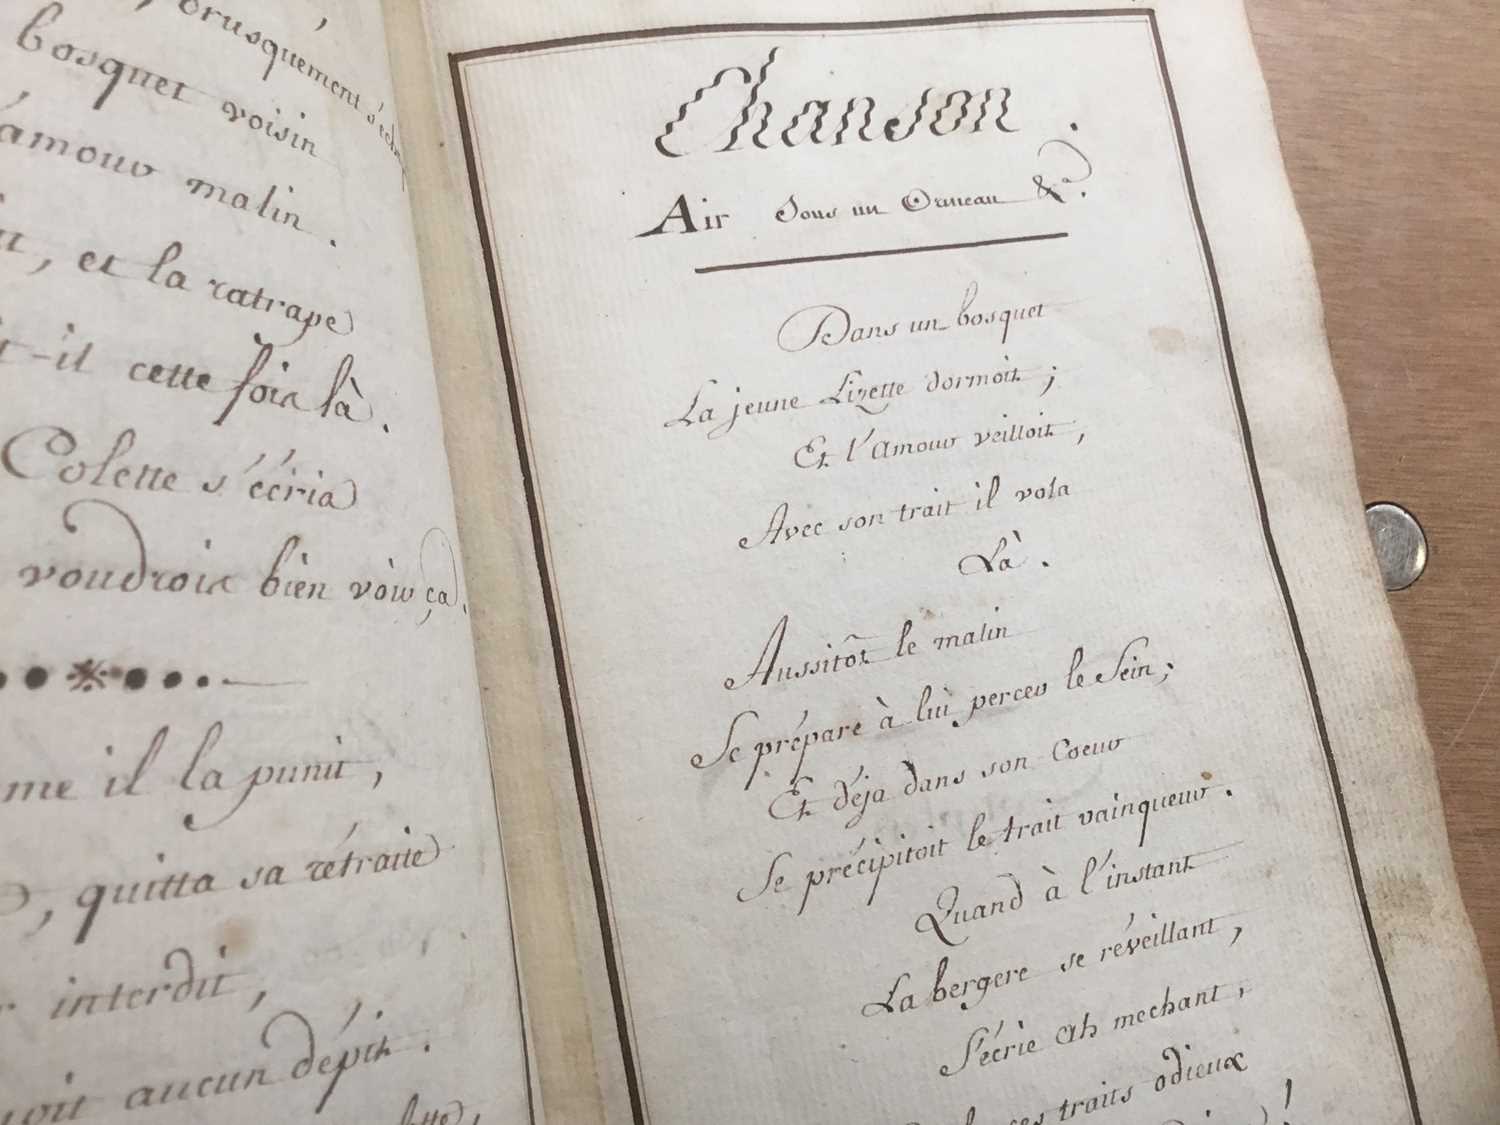 brusquément
bosquet voisin
ámour malin.
, et la ratrape
-il cette fois là.
Colette s'écria
voudrois bien voir ça.
me il la punit,
, quitta sa rétraite
interdit,
aucun dépit.
Chanson.
Air Sous un Ormeau &.
Dans un bosquet
La jeune Lizette dormoit;
Et l'Amour veilloit,
Avec son trait il vola
Là.
Aussitôt le malin
Se prépare à lui percer le Sein;
Et déja dans son Coeur
Se précipitoit le trait vainqueur.
Quand à l'instant
La bergere se réveillant,
S'écrie ah mechant,
ces traits odieux